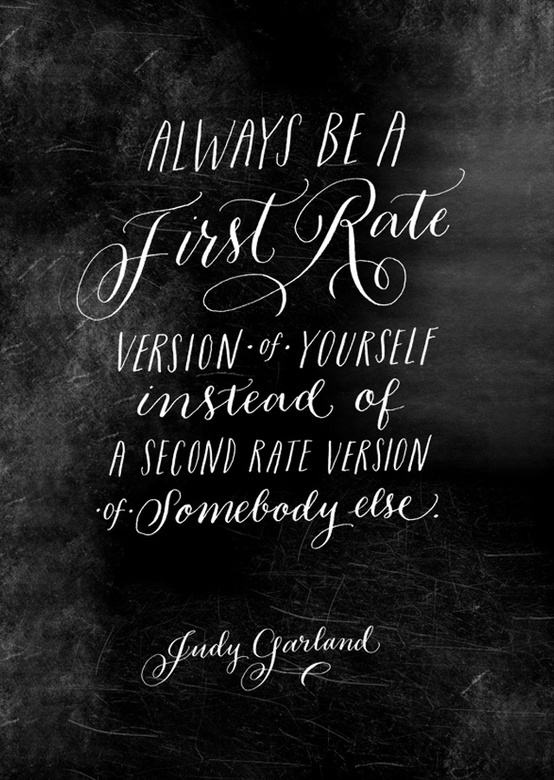 ALWAYS BE A
First Rate
VERSION · of · YOURSELF
instead of
A SECOND RATE VERSION
· of · Somebody else.
Judy Garland